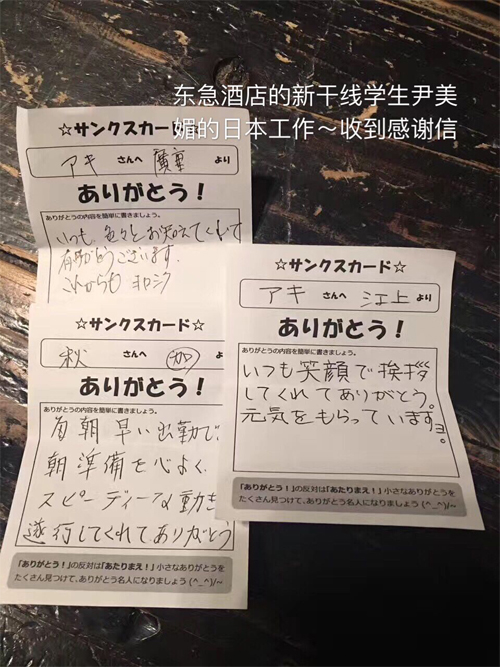 东急酒店的新干线学生尹美
媚的日本工作～收到感谢信
☆サンクスカード
アキ さんへ 廣重 より
ありがとう！
ありがとうの内容を簡単に書きましょう。
いつも、色々とお教えてくれて
有難がとうございます。
これからも ヨロシク
☆サンクスカード☆
秋 さんへ 加
ありがとう！
ありがとうの内容を簡単に書きましょう。
毎朝早い出勤で
朝準備を心よく、
スピーディーな動き
遂行してくれてありがとう
「ありがとう！」の反対は「あたりまえ！」小さなありがとうを
たくさん見つけて、ありがとう名人になりましょう(^_^)/~
☆サンクスカード☆
アキ さんへ 江上 より
ありがとう！
ありがとうの内容を簡単に書きましょう。
いつも笑顔で挨拶
してくれてありがとう。
元気をもらっていますヨ。
「ありがとう！」の反対は「あたりまえ！」小さなありがとうを
たくさん見つけて、ありがとう名人になりましょう(^_^)/~